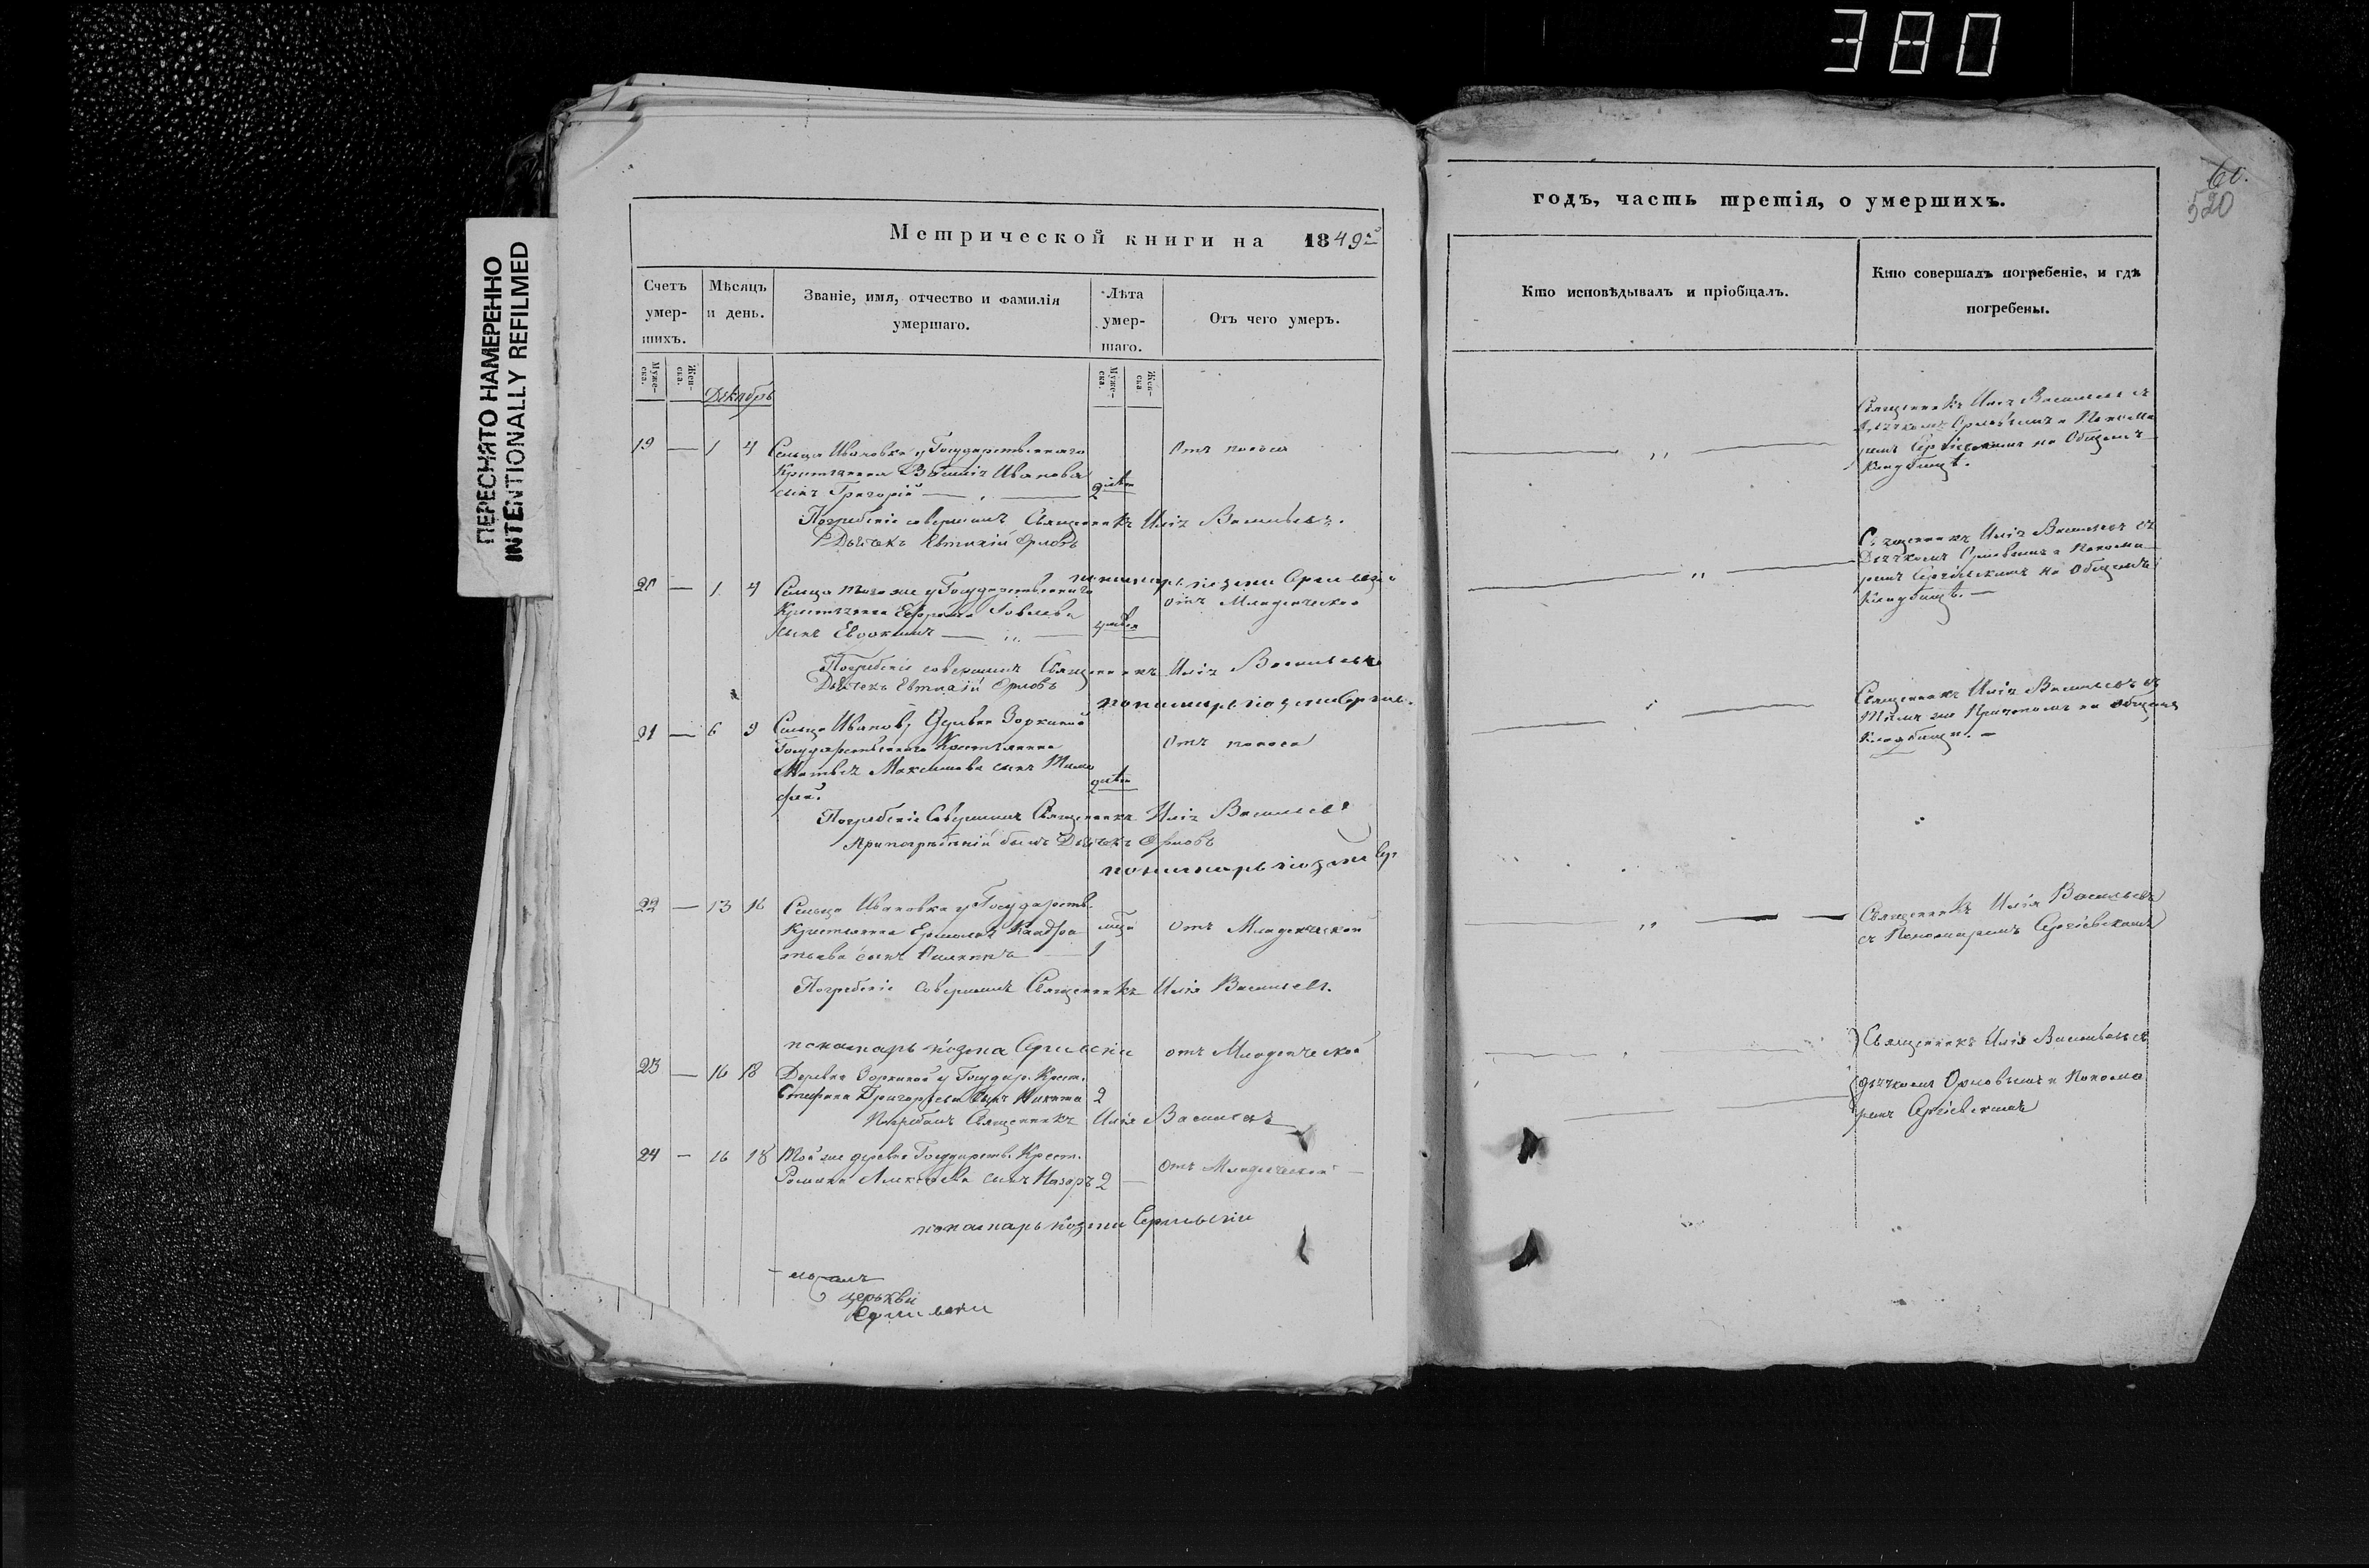 380
ПЕРЕСНЯТО НАМЕРЕННО
INTENTIONALLY REFILMED
60.
520
Метрической книги на 1849
Счетъ умер-шихъ.
Мѣсяцъ и день.
Званіе, имя, отчество и фамилія умершаго.
Лѣта умер-шаго.
Отъ чего умеръ.
Муже-ска.
Жен-ска.
Муже-ска.
Жен-ска
Декабрь
19 — 1 4 Сельца Ивановки у Государственнаго
Крестьянина Иванова
сынъ Григорій 2
Отъ поноса
Погребеніе совершилъ Священникъ Илія Васильевъ.
Дьячекъ Евтихій Орловъ
20 — 1 4 Сельца того же у Государственнаго
Отъ Младенческой
Крестьянина
сынъ Евдокимъ
Погребеніе совершилъ Священникъ Илія Васильевъ
Дьячекъ Евтихій Орловъ
21 — 6 9 Сельца Иванов, Деревни Зоркиной
Государственнаго Крестьянина
Отъ поноса
Матвѣя Максимова сынъ Тимо
фей.
Погребеніе Совершилъ Священникъ Илія Васильевъ
При погребеніи былъ Дьячекъ Орловъ
22 — 13 16 Сельца Ивановки у Государств.
Крестьянина Кондра
Отъ Младенческой
тьева сынъ 1
Погребеніе Совершилъ Священникъ Илія Васильевъ.
понамарь козма
отъ Младенческой
23 — 16 18 Деревни Зоркиной у Государ. Крест.
Стефана Григорьева сынъ Никита 2
Погребалъ Священникъ Илія Васильевъ
24 — 16 18 Той же деревни Государств. Крест.
Отъ Младенческой
Романа сынъ Назаръ 2
понамарь козма
церькви
годъ, часть третія, о умершихъ.
Кто исповѣдывалъ и пріобщалъ.
Кто совершалъ погребеніе, и гдѣ погребены.
Священникъ Илія Васильевъ съ
Дьячкомъ Орловымъ и Понома
ремъ Сергіевскимъ на Общемъ
Кладбищѣ.
Священникъ Илія Васильевъ съ
Дьячкомъ Орловымъ и Понома
ремъ Сергіевскимъ на Общемъ
Кладбищѣ. —
Священникъ Илія Васильевъ съ
Тѣмъ же Причтомъ на общемъ
Кладбищѣ. —
Священникъ Илія Васильевъ
съ Пономаремъ Сергіевскимъ
Священникъ Илія Васильевъ съ
дьячкомъ Орловымъ и Понома
ремъ Сергіевскимъ